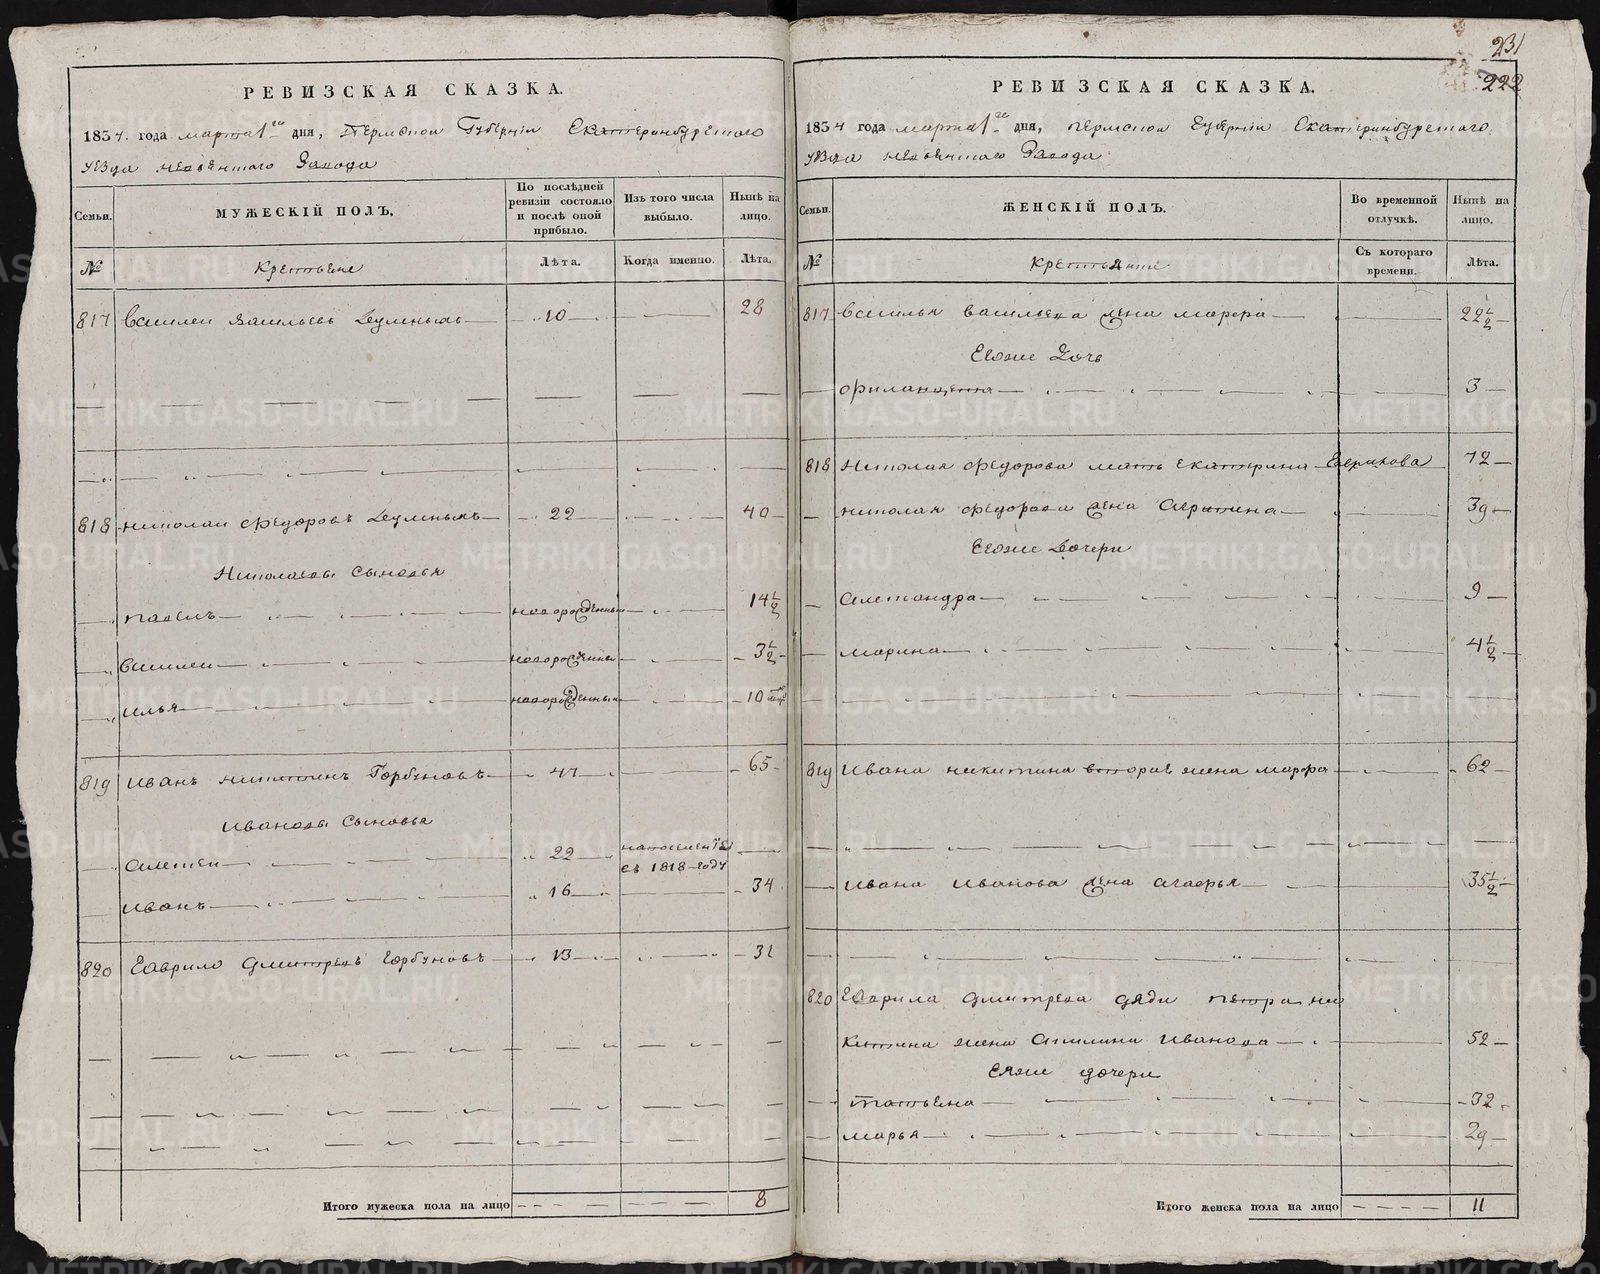 231
222
РЕВИЗСКАЯ СКАЗКА.
1834. года марта 1го дня, Пермской Губернiи Екатеринбургскаго
уезда невьянскаго Завода
Семьи.
МУЖЕСКІЙ ПОЛЪ.
По послѣдней ревизіи состояло и послѣ оной прибыло.
Изъ того числа выбыло.
Нынѣ на лицо.
№
Крестьяне
Лѣта.
Когда именно.
Лѣта.
817 Василеи Васильевъ 10 28
818 николаи Федоровъ 22 40
Николаевы сыновья
павелъ новорожденныи 14 1/2
Василеи новорожденныи 3 1/2
илья новорожденныи 10
819 Иванъ никитинъ Горбуновъ 47 65
Ивановы сыновья
алексеи 22 въ 1818 году
Иванъ 16 34
820 Гаврило дмитревъ Горбуновъ 13 31
Итого мужеска пола на лицо 8
РЕВИЗСКАЯ СКАЗКА.
1834 года марта 1го дня, пермской Губернiи Екатеринбургскаго
уезда невьянскаго Завода
Семьи.
ЖЕНСКІЙ ПОЛЪ.
Во временной отлучкѣ.
Нынѣ на лицо.
№
Крестьянки
Съ котораго времени.
Лѣта.
817 Василья васильева жена марфа 22 1/2
Ево же дочь
3
818 Николая федорова мать екатерина Гаврилова 72
николая федорова жена 39
Ево же дочери
александра 9
марина 4 1/2
819 Ивана никитина вторая жена марфа 62
Ивана Иванова жена агафья 35 1/2
820 Гаврила дмитрева дяди петра ни
китина жена акилина иванова 52
Ея же дочери
татьяна 32
марья 29
Итого женска пола на лицо 11
METRIKI.GASO-URAL.RU